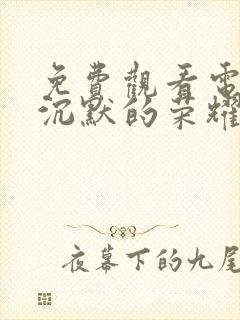 免費觀看電
沉默的荣耀
夜幕下的九尾